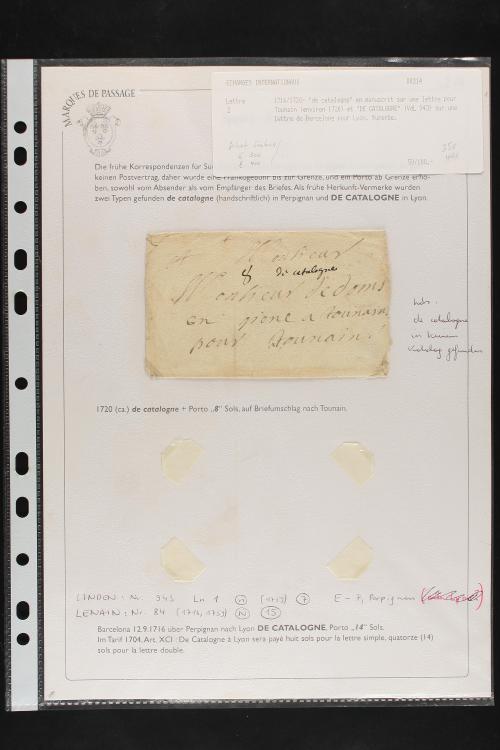 MARQUES DE PASSAGE
ECHANGES INTERNATIONAUX 00314
Lettre 1716/1720- "de catalogne" en manuscrit sur une lettre pour
2 Tounain (environ 1720) et "DE CATALOGNE" (Vdl 943) sur une
lettre de Barcelone pour Lyon. Superbe.
350
50/100,-
Die frühe Korrespondenzen für
keinen Postvertrag, daher wurde eine Frankogebühr bis zur Grenze, und ein Porto ab Grenze erho-
ben, sowohl vom Absender als vom Empfänger des Briefes. Als frühe Herkunft-Vermerke wurden
zwei Typen gefunden de catalogne (handschriftlich) in Perpignan und DE CATALOGNE in Lyon.
A Monsieur
8 de catalogne
Monsieur de doms
en a tounain
pour tounain
hds.
de catalogne
in keinem
Katalog gefunden
1720 (ca.) de catalogne + Porto „8" Sols, auf Briefumschlag nach Tounain.
LINDEN: Nr. 943 Ln 1 (11) (1713) (7) E-7, Perpignan
LENAIN: Nr. 84 (1716, 1759) (N) (15)
Barcelona 12.9.1716 über Perpignan nach Lyon DE CATALOGNE, Porto „14" Sols.
Im Tarif 1704, Art. XCI : De Catalogne à Lyon sera payé huit sols pour la lettre simple, quatorze (14)
sols pour la lettre double.